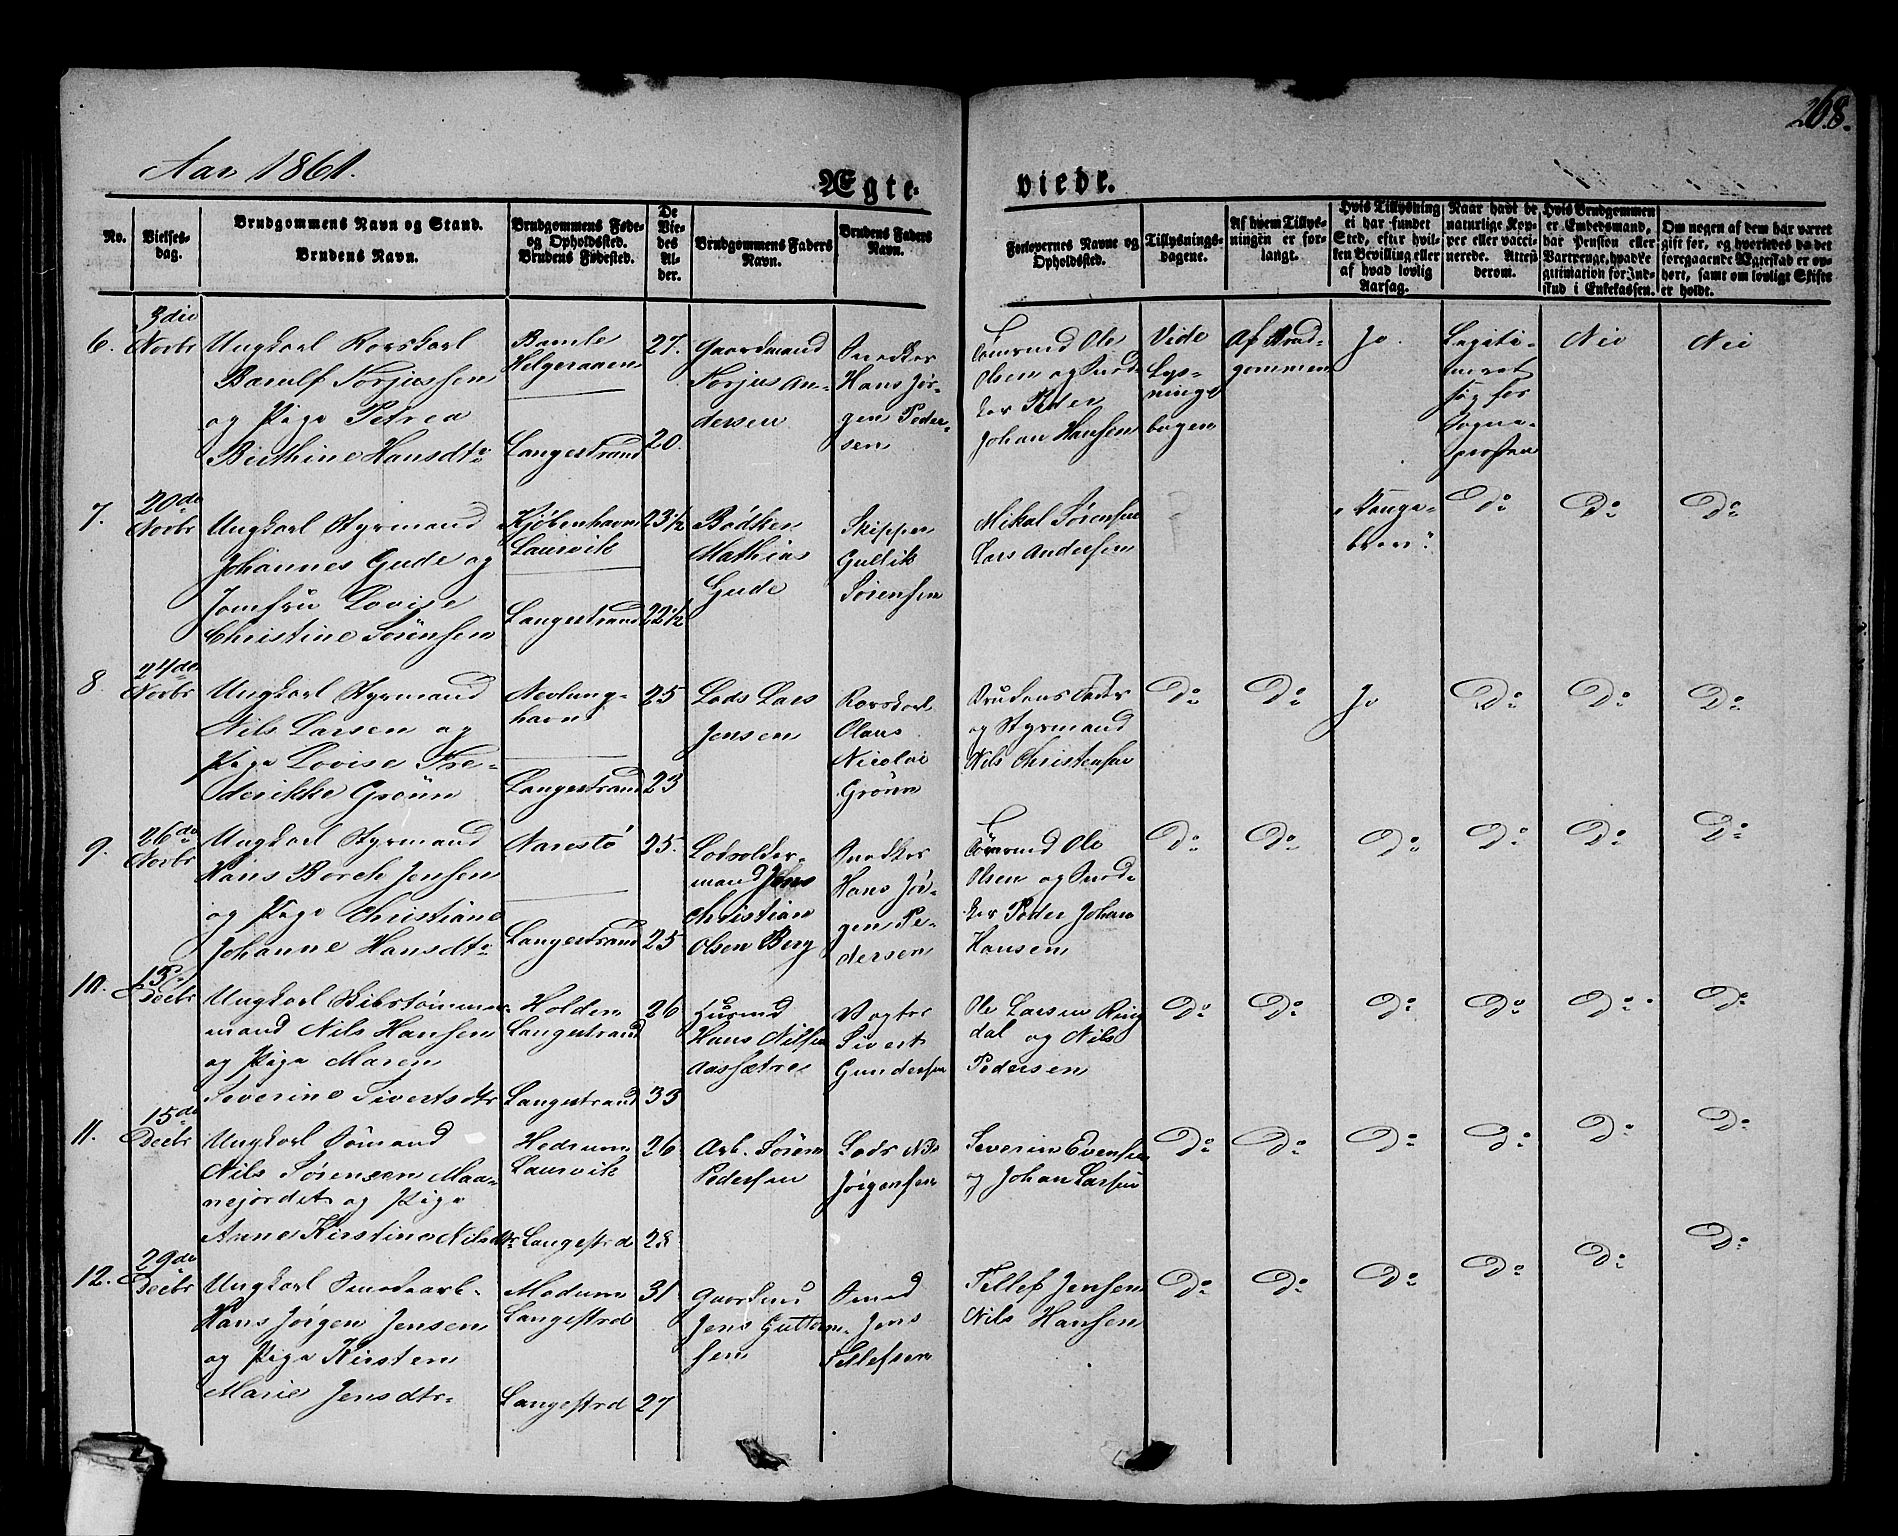 268.
Aar 1861.
Ægte-
viede.
No.
Vielses-
dag.
Brudgommens Navn og Stand.
Brudens Navn.
Brudgommens Føde-
og Opholdssted.
Brudens Fødested.
De
Vie-
des
Al-
der.
Brudgommens Faders
Navn.
Brudens Faders
Navn.
Forlovernes Navne og
Opholdssted.
Tillysnings-
dagene.
Af hvem Tillys-
ningen er for-
langt.
Hvis Tillysning
ei har fundet
Sted, efter hvil-
ken Bevilling eller
af hvad lovlig
Aarsag.
Naar havt de
naturlige Kop-
per eller vacci-
nerede. Attest
derom.
Hvis Brudgommen
er Embedsmand,
har Pension eller
Vartpenge, hvad
gitimation for Ind-
skud i Enkekassen.
Om nogen af dem har været
gift før, og hvorledes da det
foregaaende Ægteskab er op-
hørt, samt om lovligt Skifte
er holdt.
6.
3die
Novbr
Ungkarl Rorskarl
Torjussen
og Pige Petrea
Birthine Hansdtr
Bamle
Helgeraaen
Langestrand
27.
20.
Gaardmand
Torjus An-
dersen
Snedker
Hans Jør-
gen Peder-
sen
Tømrmd Ole
Olsen og Sned-
ker Peder
Johan Hansen
Vide
Lys-
nings
bogen
Af Brud-
gommen
Jo.
Legiti-
meret
sig for
Sogne-
presten
Nei
Nei
7.
20de
Novbr
Ungkarl Styrmand
Johannes Gude og
Jomfru Lovise
Christine Sørensen
Kjøbenhavn
Laurvik
Langestrand
23 1/2
22 1/2
Bødker
Mathias
Gude
Skipper
Gullik
Sørensen
Mikal Sørensen
Lars Andersen
Konge-
brev.
Do
Do
Do
8
24de
Novbr
Ungkarl Styrmand
Nils Larsen og
Pige Lovise Fre-
derikke Grønn
Nevlung-
havn
Langestrand
25
23
Lods Lars
Jensen
Rorskarl
Olaus
Nicolai
Grønn
Brudens Fader
og Styrmand
Nils Christensen
Do
Do
Jo
Do
Do
Do
9.
26de
Novbr
Ungkarl Styrmand
Hans Borch Jensen
og Pige Christiane
Johanne Hansdtr
Narestø
Langestrand
25.
25
Lodsolder-
mand Jens
Christian
Olsen Berg
Snedker
Hans Jør-
gen Pe-
dersen
Tømrmd Ole
Olsen og Sned-
ker Peder Johan
Hansen
Do
Do
Do
Do
Do
Do
10.
Decbr
Ungkarl Skibstømmer-
mand Nils Hansen
og Pige Maren
Severine Sivertsdtr
Holden
Langestrand
Langestrand
26
33
Husmd
Hans Nilsen
Aassætre
Vogter
Sivert
Gundersen
Ole Larsen Ring-
dal og Nils
Pedersen
Do
Do
Do
Do
Do
Do
11.
15de
Decbr
Ungkarl Sømand
Nils Sørensen Maa-
nejordet og Pige
Anne Kirstine Nilsdtr
Hedrum
Laurvik
Langestrd
26
28
Arb. Søren
Pedersen
Lods Nils
Jørgensen
Severin Evensen
og Johan Larsen
Do
Do
Do
Do
Do
Do
12.
29de
Decbr
Ungkarl Smedearb.
Hans Jørgen Jensen
og Pige Kirsten
Marie Jensdtr
Modum
Langestrd
Langestrd
31
27
Jens Guttorm-
sen
Smed
Jens
Tellefsen
Tellef Jensen
Nils Hansen
Do
Do
Do
Do
Do
Do